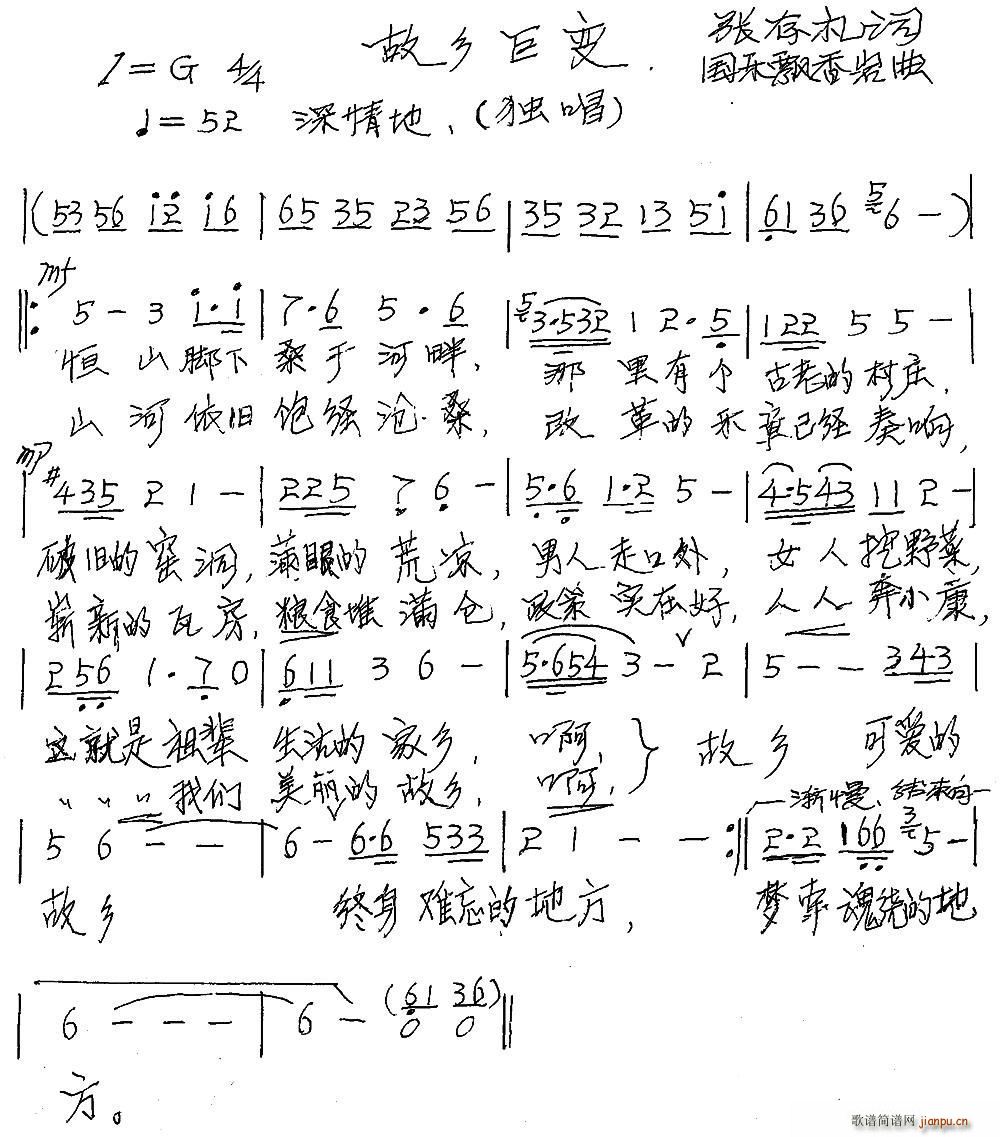 故乡巨变
张存礼词
国乐飘香岩曲
1=G 4/4
♩=52 深情地、(独唱)
|(53 56 i2 i6 | 65 35 23 56 | 35 32 13 5i | 61 36 5 6 - )|
mf
||: 5 - 3 i·i | 7·6 5·6 | 5 3·532 1 2·5 | 122 5 5 - |
恒 山 脚下 桑于河畔, 那 里有个 古老的村庄,
山 河 依旧 饱经沧桑, 改 革的乐章已经奏响,
mp
| #435 2 1 - | 225 7 6 - | 5·6 1·2 5 - | 4·543 11 2 - |
破旧的窑洞, 满眼的荒凉, 男人走口外, 女人挖野菜,
崭新的瓦房, 粮食堆满仓, 政策实在好, 人人奔小康,
| 256 1·7 0 | 611 3 6 - | 5·654 3 - ∨ 2 | 5 - - 343 |
这就是祖辈 生活的家乡, 啊, } 故乡 可爱的
" " " 我们 美丽的故乡, 啊,
渐慢、结束句
| 5 6 - - | 6 - ∨ 6·6 533 | 2 1 - - :|| 2·2 166 3 5 - |
故乡 终身难忘的地方, 梦牵魂绕的地
| 6 - - - | 6 - (61 36) ||
0 0
方。
歌谱简谱网
jianpu.cn